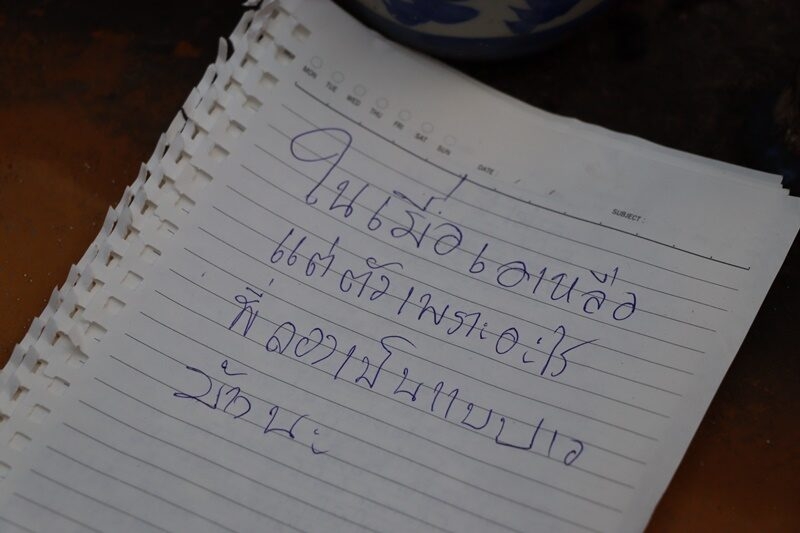 MON TUE WED THU FRI SAT SUN
DATE : / / SUBJECT :
ในเมื่อเอเหลือ
แต่ตัวเพราะอะไร
พี่ลองเป็นแบบเอ
บ้างนะ